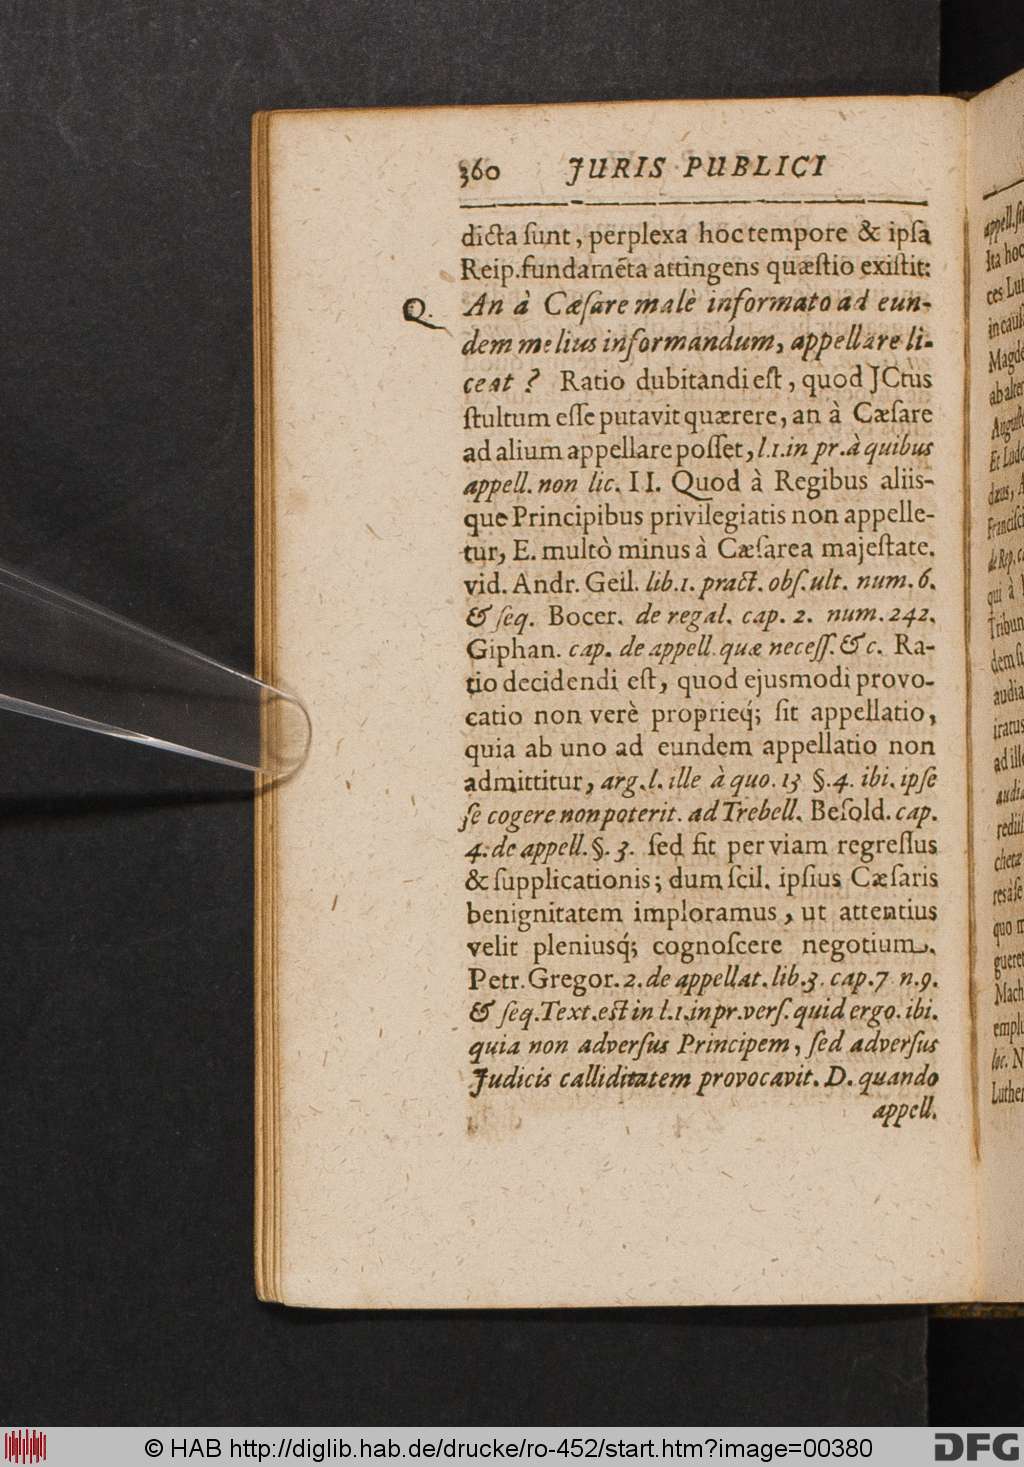 360 JURIS PUBLICI
dicta ſunt, perplexa hoc tempore & ipſa
Reip. fundamẽta attingens quæſtio exiſtit:
Q. An à Cæſare malè informato ad eun-
dem melius informandum, appellare li-
ceat? Ratio dubitandi eſt, quod JCtus
ſtultum eſſe putavit quærere, an à Cæſare
ad alium appellare poſſet, l.1. in pr. à quibus
appell. non lic. II. Quod à Regibus aliis-
que Principibus privilegiatis non appelle-
tur, E. multò minus à Cæſarea majeſtate.
vid. Andr. Geil. lib. 1. pract. obſ. ult. num. 6.
& ſeq. Bocer. de regal. cap. 2. num. 242.
Giphan. cap. de appell. quæ neceſſ. &c. Ra-
tio decidendi eſt, quod ejusmodi provo-
catio non verè proprieq́; ſit appellatio,
quia ab uno ad eundem appellatio non
admittitur, arg. l. ille à quo. 13 §. 4. ibi. ipſe
ſe cogere non poterit. ad Trebell. Beſold. cap.
4. de appell. §. 3. ſed fit per viam regreſſus
& ſupplicationis; dum ſcil. ipſius Cæſaris
benignitatem imploramus, ut attentius
velit pleniusq́; cognoſcere negotium.
Petr. Gregor. 2. de appellat. lib. 3. cap. 7 n. 9.
& ſeq. Text. eſt in l. 1. in pr. verſ. quid ergo. ibi.
quia non adverſus Principem, ſed adverſus
Judicis calliditatem provocavit. D. quando
appell.
appell. ſi
Ita hoc
ces Lu
in cauſ
Magde
ab alter
Auguſt
Et Ludo
dæus, A
Franciſci
de Rep. c
qui à
Tribun
dem ſu
audia
iratus
ad ill
audi
rediiſ
chetæ
res à ſe
quo m
gueret
Mach
emplu
loc. N
Luther
© HAB http://diglib.hab.de/drucke/ro-452/start.htm?image=00380
DFG